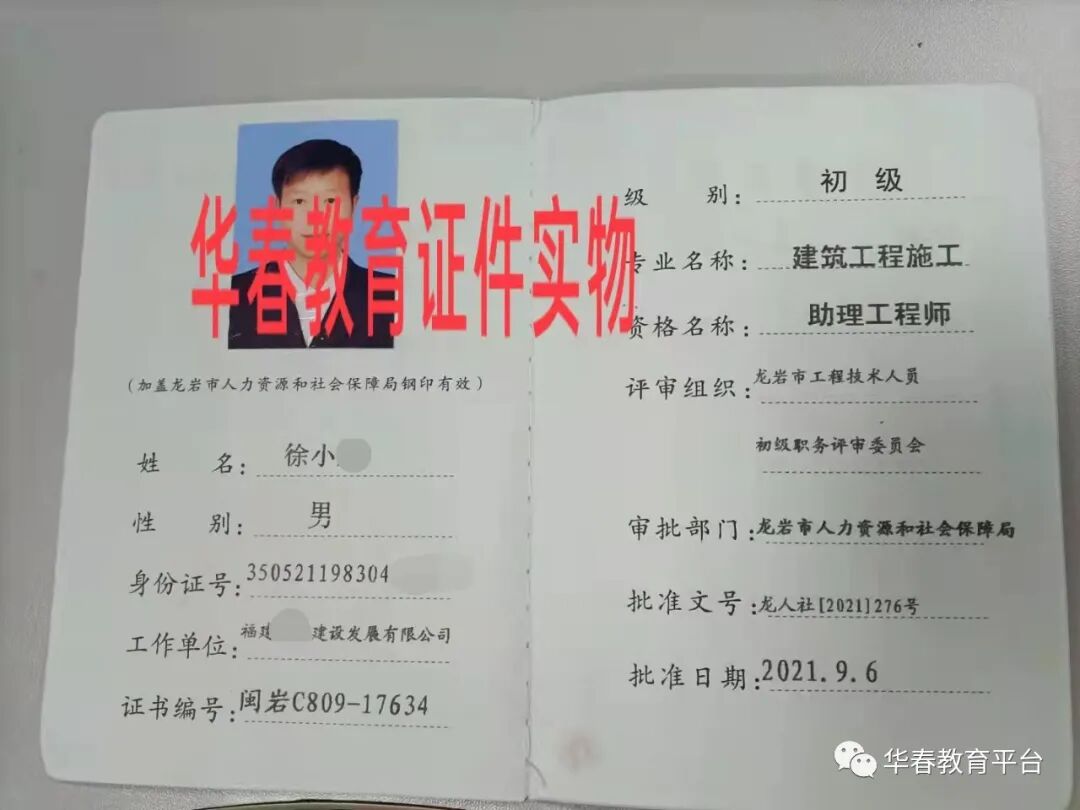 华春教育证件实物
(加盖龙岩市人力资源和社会保障局钢印有效)
姓 名: 徐小
性 别: 男
身份证号: 350521198304
工作单位: 福建 建设发展有限公司
证书编号: 闽岩C809-17634
级 别: 初 级
专业名称: 建筑工程施工
资格名称: 助理工程师
评审组织: 龙岩市工程技术人员
初级职务评审委员会
审批部门: 龙岩市人力资源和社会保障局
批准文号: 龙人社[2021]276号
批准日期: 2021.9.6
华春教育平台